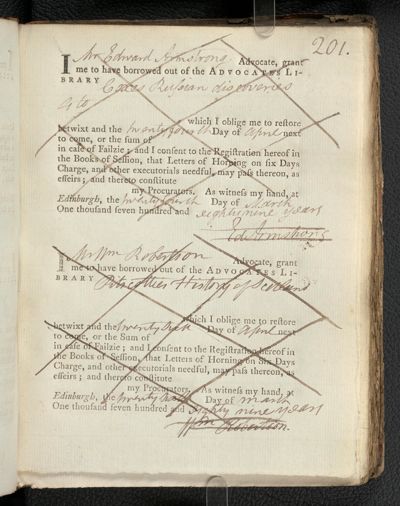 201.
I Mr Edward Armstrong Advocate, grant
me to have borrowed out of the ADVOCATES LI-
BRARY Coxes Russian discoveries
4to
which I oblige me to restore
betwixt and the twenty fourth Day of April next
to come, or the sum of
in case of Failzie; and I consent to the Registration hereof in
the Books of Session, that Letters of Horning on six Days
Charge, and other executorials needful, may pass thereon, as
effeirs; and thereto constitute
my Procurators. As witness my hand, at
Edinburgh, the twenty fourth Day of March
One thousand seven hundred and eighty nine years
Ed Armstrong
I Mr Wm Robertson Advocate, grant
me to have borrowed out of the ADVOCATES LI-
BRARY Pitscotties History of Scotland
which I oblige me to restore
betwixt and the twenty Day of April next
to come, or the Sum of
in case of Failzie; and I consent to the Registration hereof in
the Books of Session, that Letters of Horning on Six Days
Charge, and other executorials needful, may pass thereon, as
effeirs; and thereto constitute
my Procurators. As witness my hand, at
Edinburgh, the twenty Day of March
One thousand seven hundred and eighty nine years
Wm Robertson.